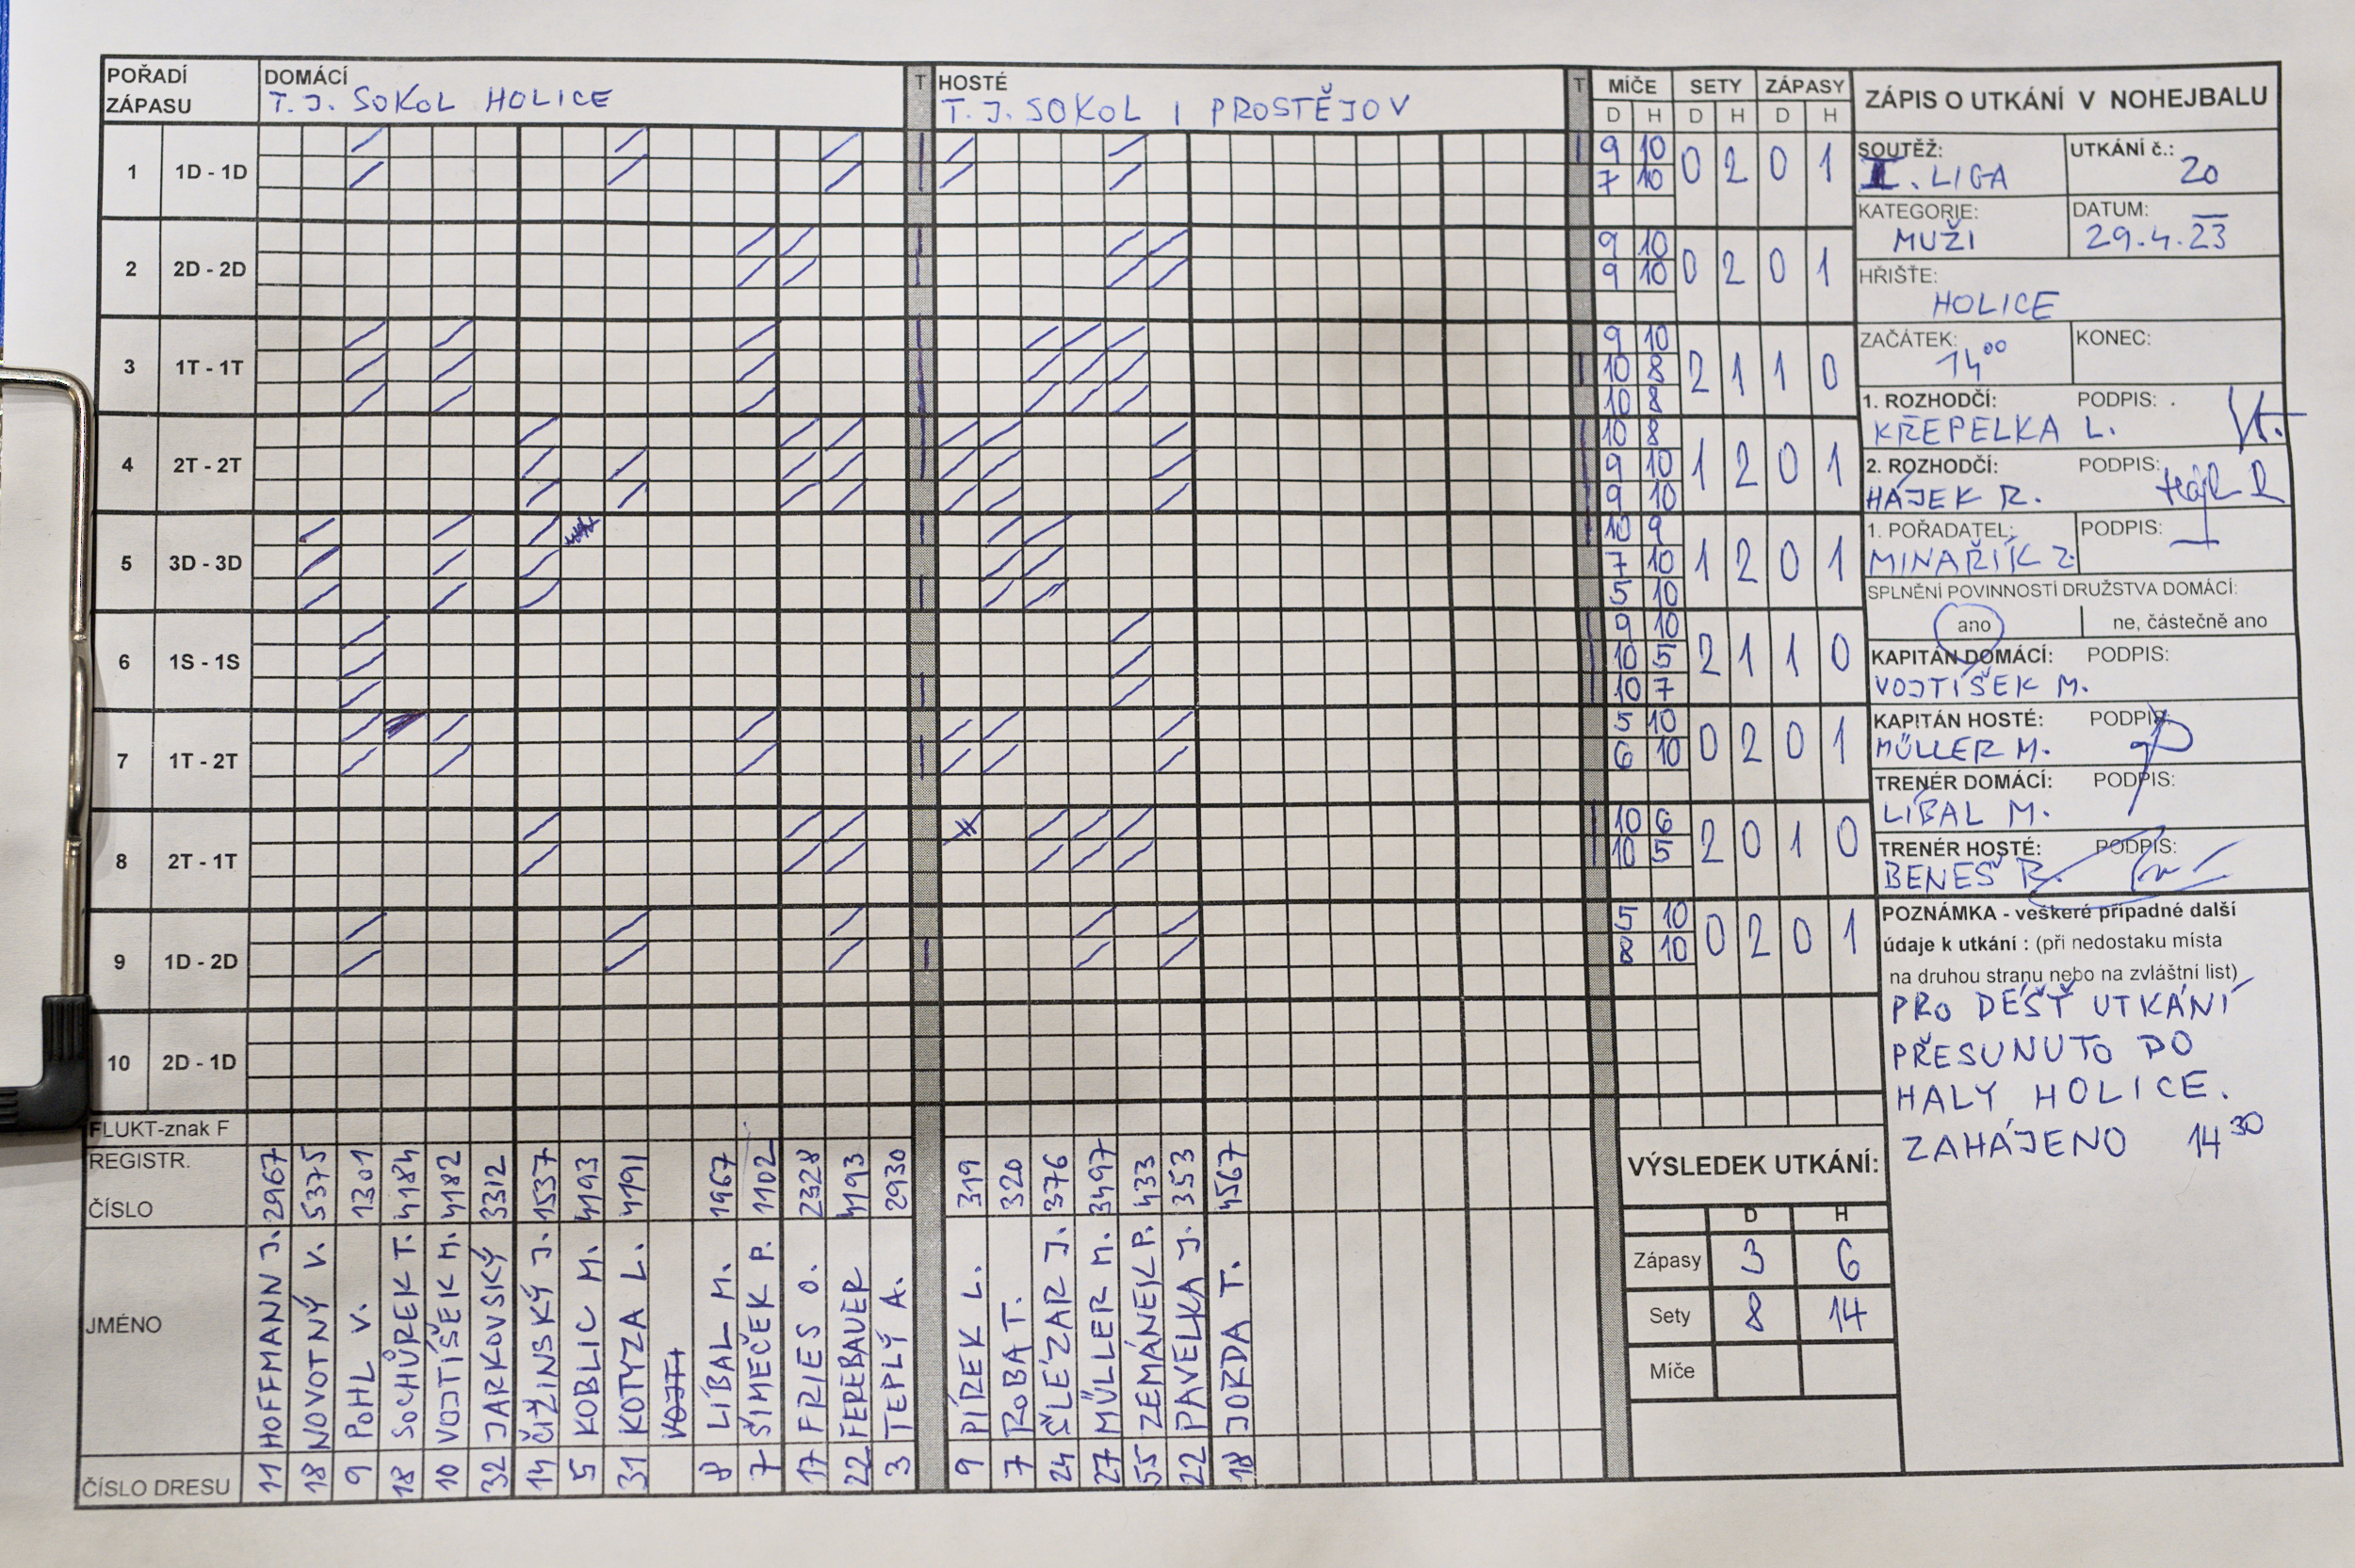 POŘADÍ ZÁPASU
DOMÁCÍ
T.J. SOKOL HOLICE
T
HOSTÉ
T.J. SOKOL I PROSTĚJOV
T
MÍČE SETY ZÁPASY
D H D H D H
1 1D - 1D
9 10
7 10
0 2 0 1
2 2D - 2D
9 10
9 10
0 2 0 1
3 1T - 1T
9 10
10 8
10 8
2 1 1 0
4 2T - 2T
10 8
9 10
9 10
1 2 0 1
5 3D - 3D
10 9
7 10
5 10
1 2 0 1
6 1S - 1S
9 10
10 5
10 7
2 1 1 0
7 1T - 2T
5 10
6 10
0 2 0 1
8 2T - 1T
10 6
10 5
2 0 1 0
9 1D - 2D
5 10
8 10
0 2 0 1
10 2D - 1D
FLUKT-znak F
REGISTR. ČÍSLO
2967 5375 1301 4184 4182 3312 1537 4193 4191 1967 1102 2328 4193 2930
319 320 376 3497 433 353 4567
JMÉNO
HOFFMANN J.
NOVOTNÝ V.
POHL V.
SOCHŮREK T.
VOJTÍŠEK M.
JARKOVSKÝ
ČIŽINSKÝ J.
KOBLIC M.
KOTYZA L.
LÍBAL M.
ŠIMEČEK P.
FRIES O.
FEREBAUER
TEPLÝ A.
PÍREK L.
ROBA T.
ŠLÉZAR J.
MÜLLER M.
ZEMÁNEK P.
PAVELKA J.
JORDA T.
ČÍSLO DRESU
11 18 9 18 10 32 14 5 31 8 7 17 22 3
9 7 24 27 55 22 18
ZÁPIS O UTKÁNÍ V NOHEJBALU
SOUTĚŽ:
I. LIGA
UTKÁNÍ č.:
20
KATEGORIE:
MUŽI
DATUM:
29.4.23
HŘIŠTĚ:
HOLICE
ZAČÁTEK:
14 00
KONEC:
1. ROZHODČÍ: PODPIS:
KŘEPELKA L.
2. ROZHODČÍ: PODPIS:
HÁJEK R.
1. POŘADATEL: PODPIS:
MINAŘÍK Z.
SPLNĚNÍ POVINNOSTÍ DRUŽSTVA DOMÁCÍ:
ano ne, částečně ano
KAPITÁN DOMÁCÍ: PODPIS:
VOJTÍŠEK M.
KAPITÁN HOSTÉ: PODPIS
MÜLLER M.
TRENÉR DOMÁCÍ: PODPIS:
LÍBAL M.
TRENÉR HOSTÉ: PODPIS:
BENEŠ R.
POZNÁMKA - veškeré případné další
údaje k utkání : (při nedostaku místa
na druhou stranu nebo na zvláštní list)
PRO DÉŠŤ UTKÁNÍ
PŘESUNUTO DO
HALY HOLICE.
ZAHÁJENO 14 30
VÝSLEDEK UTKÁNÍ:
D H
Zápasy 3 6
Sety 8 14
Míče